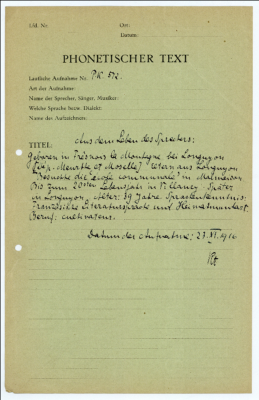 Lfd. Nr.
Ort:
Datum:
PHONETISCHER TEXT
Lautliche Aufnahme Nr. PK. 572.
Art der Aufnahme:
Name der Sprecher, Sänger, Musiker:
Welche Sprache bezw. Dialekt:
Name des Aufzeichners:
TITEL: Aus dem Leben des Sprechers:
Geboren in Fresnois la Montagne bei Longuyon
Meurthe et Moselle) Vater aus Longuyon
Besuchte die "école communale" in
Bis zum 20sten Lebensjahr in Villancy. Später
in Longuyon. Alter: 39 Jahre Sprachkenntnis:
Französische Literatursprache und Heimatmundart.
Beruf: cultivateur.
Datum der Aufnahme: 23. XI. 1916